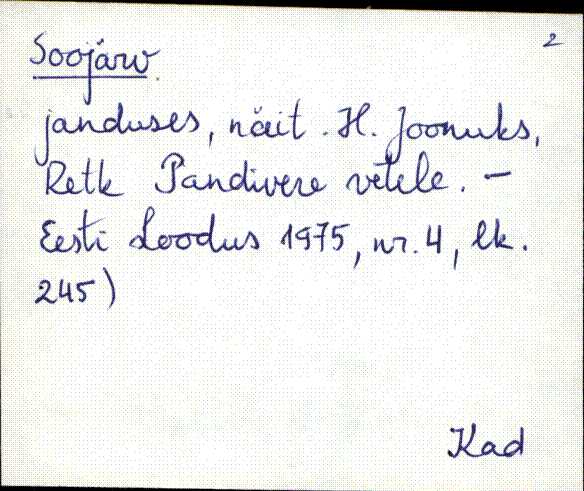 Soojärv 2
janduses, näit. H. Joonuks,
Retk Pandivere vetele. –
Eesti Loodus 1975, nr. 4, lk.
245)
Kad